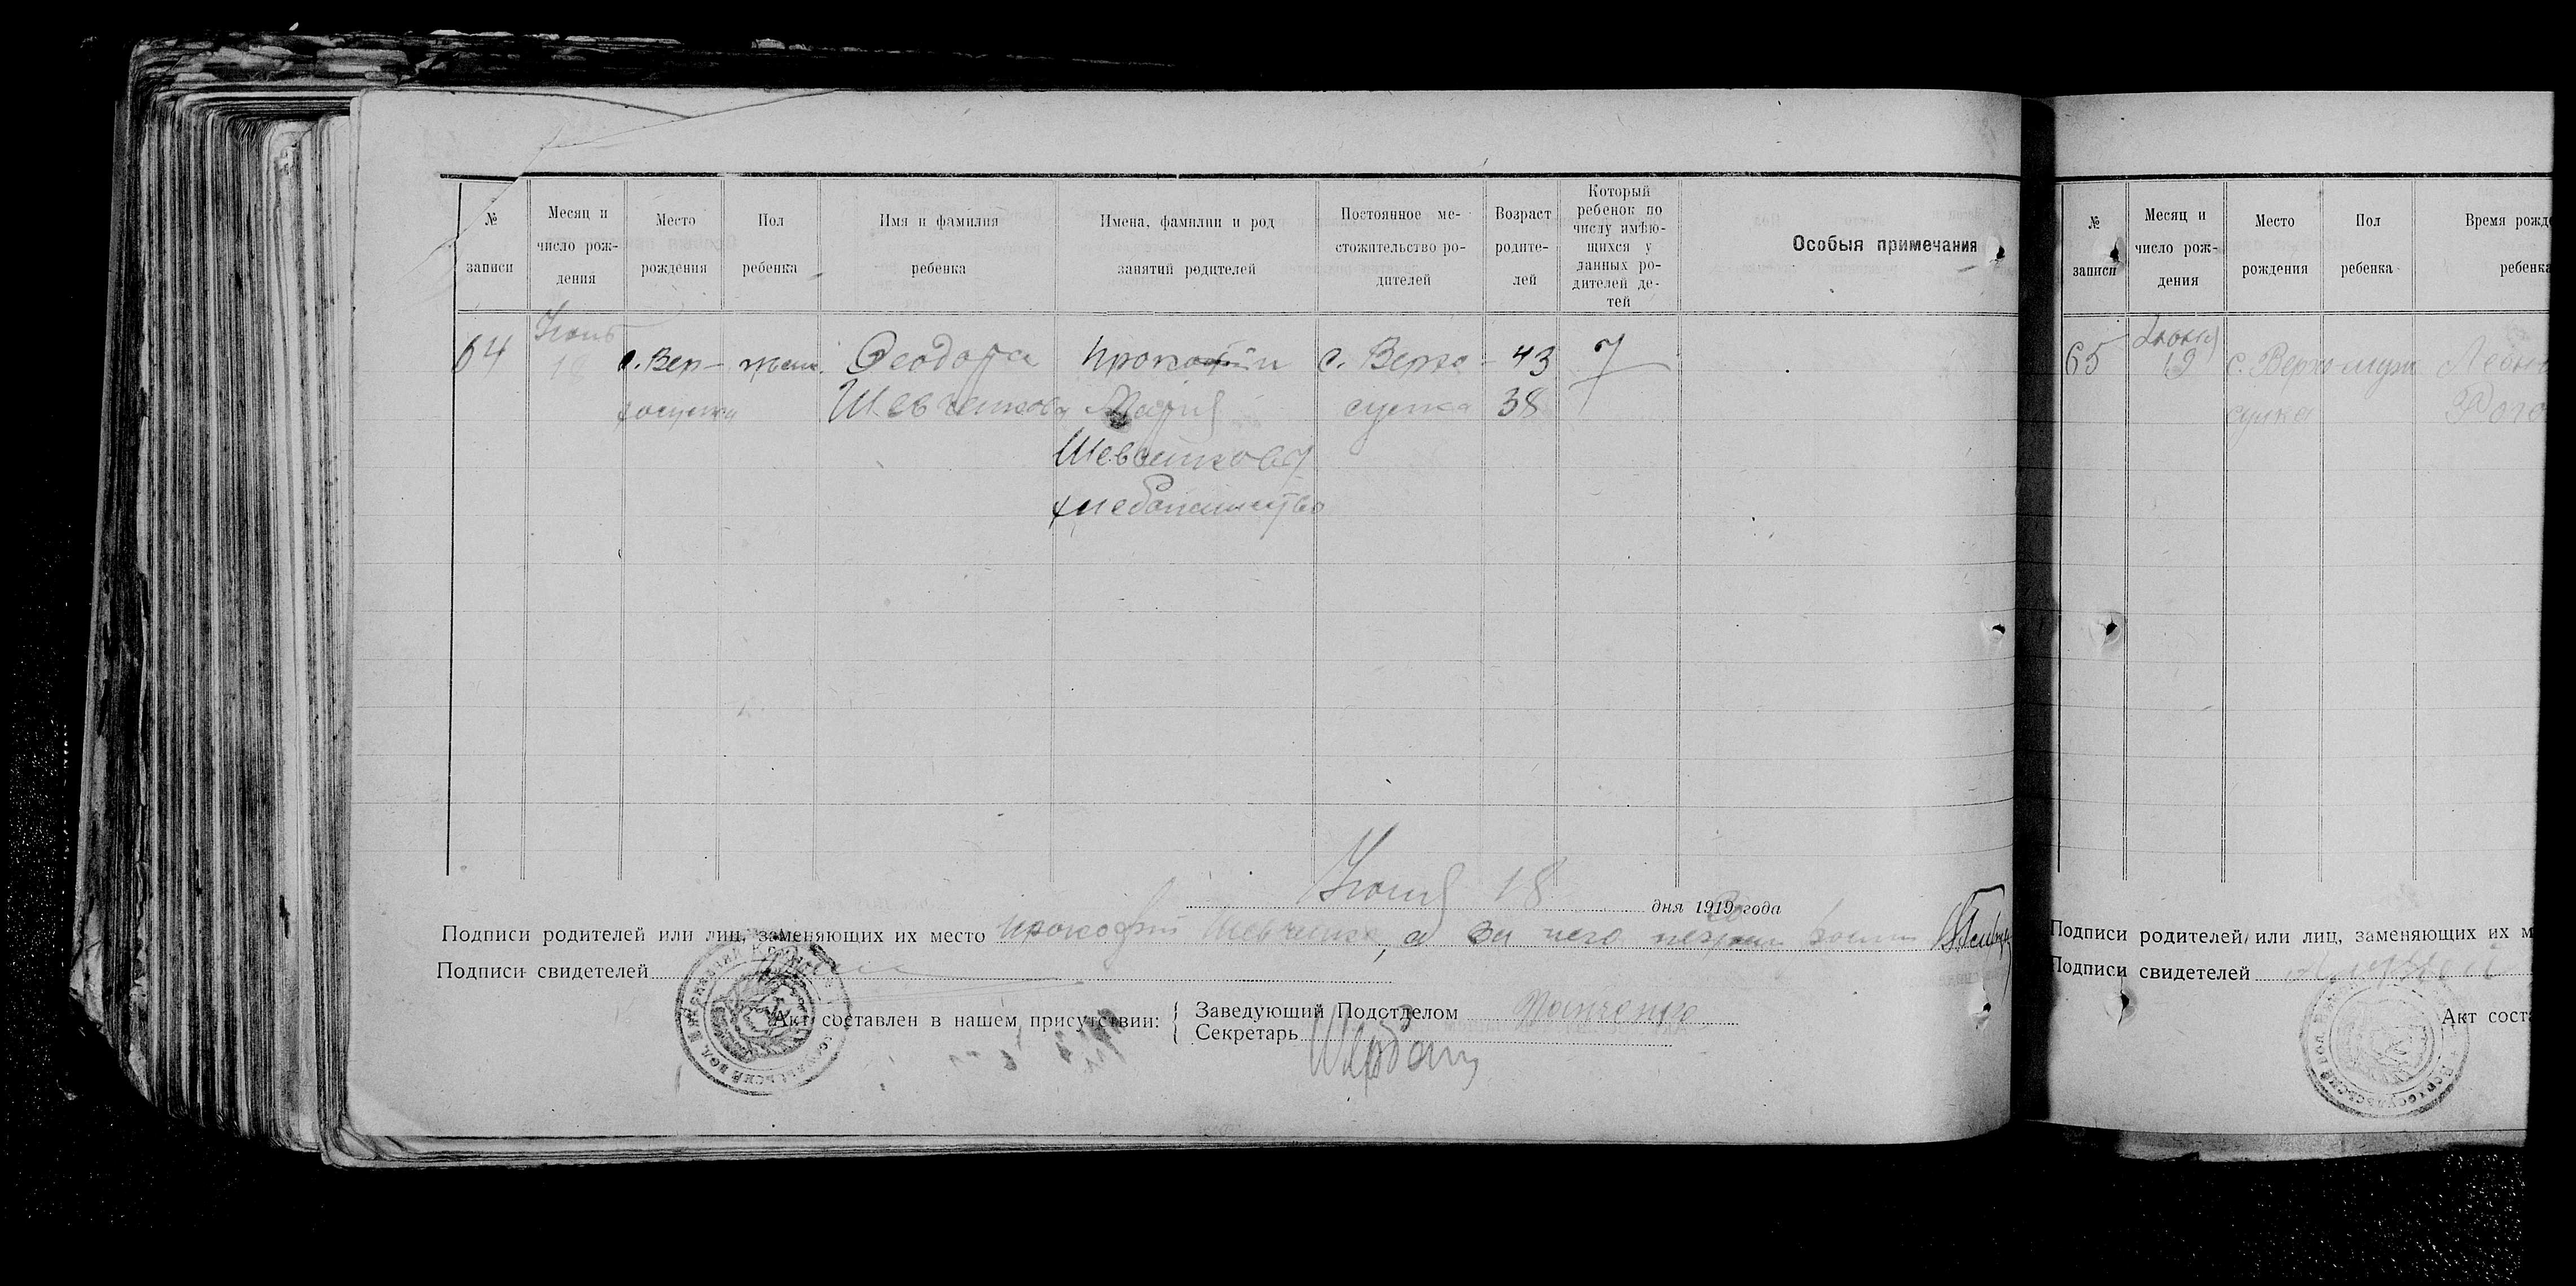 № записи
Месяц и число рож- дения
Место рождения
Пол ребенка
Имя и фамилия ребенка
Имена, фамилии и род занятий родителей
Постоянное ме- стожительство ро- дителей
Возраст родите- лей
Который ребенок по числу имѣю- щихся у данных ро- дителей де- тей
Особыя примечания
64
Июнь
18
с. Вер-
хосулка
жен.
Феодора
Шевченкова
Прокофии
Мария
Шевченкова
хлебопашество
с. Верхо
сулка
43
38
7
Июня 18 дня 1919 года
20
Подписи родителей или лиц, заменяющих их место Прокофий Шевченко, а за него неграм
Подписи свидетелей
Акт составлен в нашем присутствии:
Заведующий Подотделом
Секретарь
№ записи
Месяц и число рож- дения
Место рождения
Пол ребенка
Время рожде
ребенка
65
Июня
19
с. Верхо-
сулка
муж
Рого
Подписи родителей или лиц, заменяющих их м
Подписи свидетелей
Акт соста